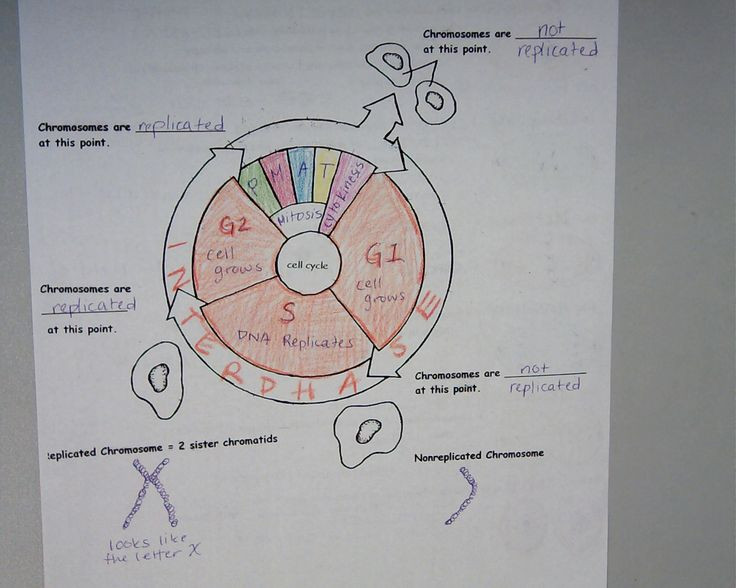 Chromosomes are not
at this point. replicated
Chromosomes are replicated
at this point.
P M A T cytokinesis
Mitosis
G2
cell
grows
cell cycle
G1
cell
grows
S
DNA Replicates
INTERPHASE
Chromosomes are
replicated
at this point.
Chromosomes are not
at this point. replicated
eplicated Chromosome = 2 sister chromatids
looks like
the letter X
Nonreplicated Chromosome